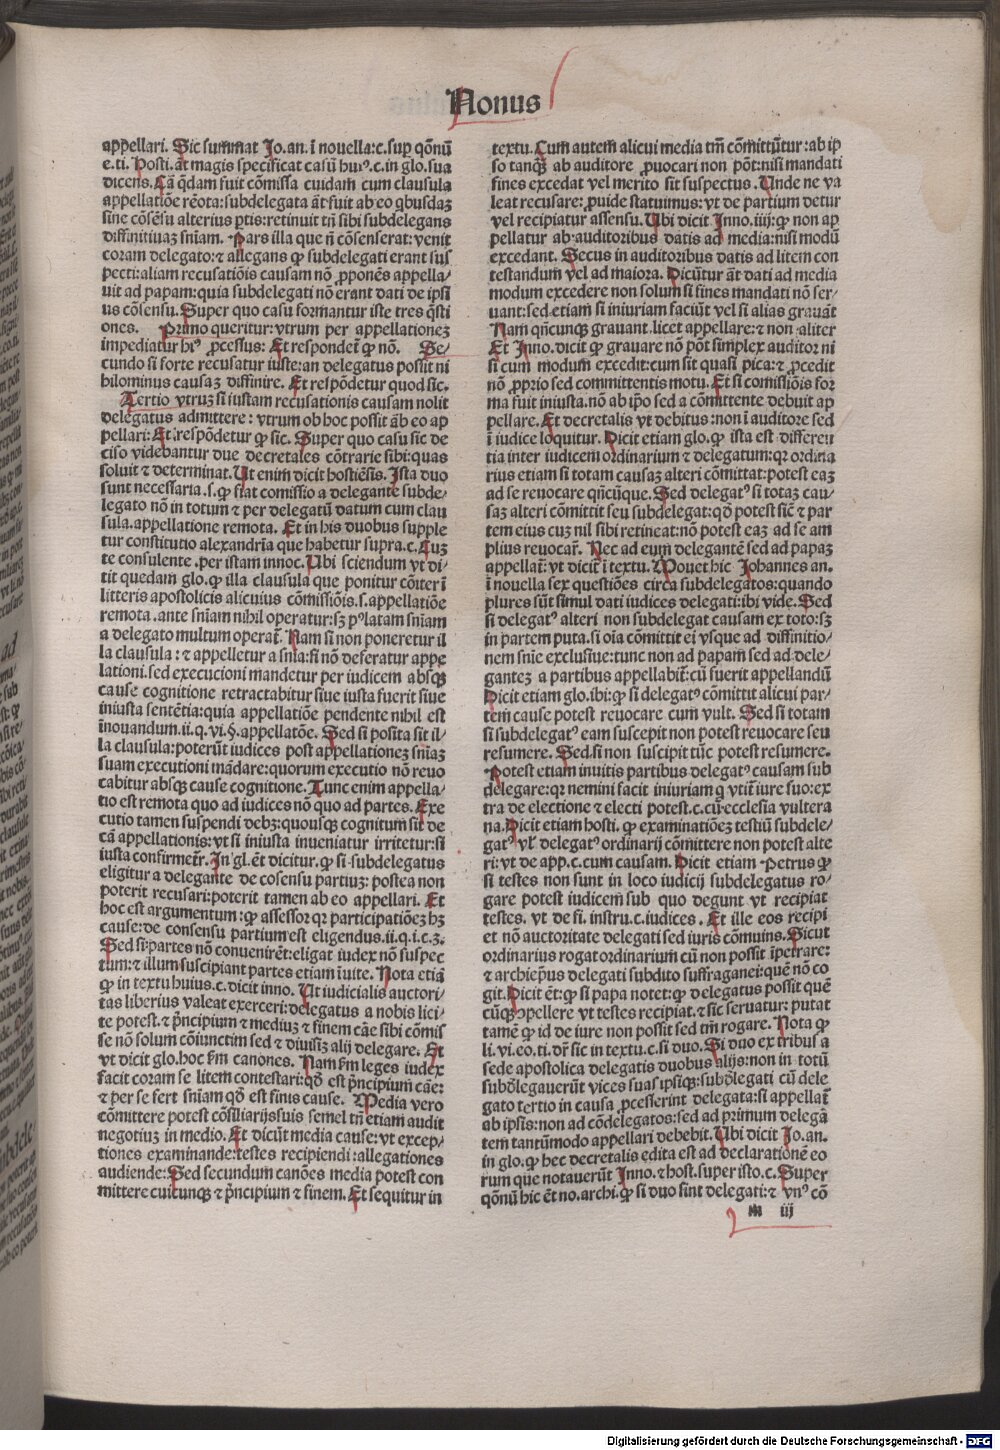 Nonus
appellari. Sic summat Jo.an. ī nouella:c.sup q̄onū
e.ti. Hosti.āt magis specificat casū huiꝰ.c.in glo.sua
dicens. Cā q̄dam fuit cōmissa cuidam cum clausula
appellatiōe rēota:subdelegata āt fuit ab eo qbusdaʒ
sine cōsēsu alterius ꝑtis:retinuit tn̄ sibi subdelegans
diffinitiuaʒ sniam. Pars illa que n̄ cōsenserat:venit
coram delegato:⁊ allegans ꝙ subdelegati erant sus
pecti:aliam recusatiōis causam nō ꝓponēs appella/
uit ad papam:quia subdelegati nō erant dati de ipsi
us cōsensu. Super quo casu formantur iste tres q̄sti
ones. Primo queritur:vtrum per appellationeʒ
impediatur hiꝰ ꝓcessus: Et respondet̄ ꝙ nō. Se/
cundo si forte recusatur iuste:an delegatus possit ni
hilominus causaʒ diffinire. Et respōdetur quod sic.
Tertio vtruʒ si iustam recusationis causam nolit
delegatus admittere: vtrum ob hoc possit āb eo ap
pellari: Et respōdetur ꝙ sic. Super quo casu sic de
ciso videbantur due decretales cōtrarie sibi:quas
soluit ⁊ determinat. Ut enim dicit hostiēsis. Ista duo
sunt necessaria.s.ꝙ fiat comissio a delegante subde/
legato nō in totum ⁊ per delegatū datum cum clau
sula.appellatione remota. Et in his duobus supple
tur constitutio alexandria que habetur supra.c. Cuʒ
te consulente .per istam innoc. Ubi sciendum vt di/
tit quedam glo. ꝙ illa clausula que ponitur cōiter ī
litteris apostolicis alicuius cōmissiōis.s.appellatiōe
remota .ante sniam nihil operatur:sʒ pꝰlatam sniam
a delegato multum operat̄. Nam si non poneretur il
la clausula: ⁊ appelletur a snia:si nō deferatur appe
lationi.sed execucioni mandetur per iudicem absqʒ
cause cognitione retractabitur siue iusta fuerit siue
iniusta sentētia:quia appellatiōe pendente nihil est
īnouandum.ii.q.vi.§.appellatōe. Sed si posita sit il/
la clausula:poterūt iudices post appellationeʒ sniaʒ
suam executioni mādare:quorum executio nō reuo
cabitur absqʒ cause cognitione. Tunc enim appella/
tio est remota quo ad iudices nō quo ad partes. Exe
cutio tamen suspendi debʒ:quousqʒ cognitum sit de
cā appellationis:vt si iniusta inueniatur irritetur:si
iusta confirmet̄r. In gl.ēt dicitur.ꝙ si subdelegatus
eligitur a delegante de cosensu partiuʒ: postea non
poterit recusari:poterit tamen ab eo appellari. Et
hoc est argumentum:ꝙ assessor qr participatiōeʒ hʒ
cause:de consensu partium est eligendus.ii.q.i.c.3.
Sed si partes nō conuenirēt:eligat iudex nō suspec
tum:⁊ illum suscipiant partes etiam īuite. Nota etiā
ꝙ in textu huius.c.dicit inno. Ut iudicialis auctori/
tas liberius valeat exerceri:delegatus a nobis lici/
te potest.⁊ p̄ncipium ⁊ mediuʒ ⁊ finem cāe sibi cōmis
se nō solum cōiunctim sed ⁊ diuisiʒ alij delegare. Et
vt dicit glo.hoc fm canones. Nam fm leges iudex
facit coram se litem contestari:qd̄ est p̄ncipium cāe:
⁊ per se fert sniam qd̄ est finis cause. Media vero
cōmittere potest cōsiliarijs suis semel tn̄ etiam audit
negotiuʒ in medio. Et dicūt media cause:vt excep/
tiones examinande:testes recipiendi:allegationes
audiende: Sed secundum canōes media potest con
mittere cuicunqʒ ⁊ p̄ncipium ⁊ finem. Et sequitur in
textu. Cum autem alicui media tm̄ cōmittūtur:ab ip
so tanqʒ ab auditore ꝓuocari non pōt:nisi mandati
fines excedat vel merito sit suspectus. Unde ne va
leat recusare:ꝓuide statuimus:vt de partium detur
vel recipiatur assensu. Ubi dicit Inno.iiij:ꝙ non ap
pellatur ab auditoribus datis ad media:nisi modū
excedant. Secus in auditoribus datis ad litem con
testandum vel ad maiora. Dicūtur āt dati ad media
modum excedere non solum si fines mandati nō ser/
uant:sed etiam si iniuriam faciūt vel si alias grauāt
Nam qn̄cunqʒ grauant licet appellare:⁊ non aliter
Et Inno.dicit ꝙ grauare nō pōt simplex auditor ni
si cum modum excedit:cum sit quasi pica:⁊ ꝓcedit
nō ꝓprio sed committentis motu. Et si comissiōis for
ma fuit iniusta.nō ab ip̄o sed a cōmittente debuit ap
pellare. Et decretalis vt debitus:non ī auditore sed
ī iudice loquitur. Dicit etiam glo.ꝙ ista est differen
tia inter iudicem ordinarium ⁊ delegatum:qr ordina
rius etiam si totam causaʒ alteri cōmittat:potest eaʒ
ad se reuocare qn̄cūque. Sed delegatꝰ si totaʒ cau/
saʒ alteri cōmittit seu subdelegat:qd̄ potest sic̄ ⁊ par
tem eius cuʒ nil sibi retineat:nō potest eaʒ ad se am
plius reuocar̄. Nec ad eum delegantē sed ad papaʒ
appellat̄:vt dicit̄ ī textu. Mouet hic Johannes an.
ī nouella sex questiōes circa subdelegatos:quando
plures sūt simul dati iudices delegati:ibi vide. Sed
si delegatꝰ alteri non subdelegat causam ex toto:sʒ
in partem puta.si oīa cōmittit ei vsque ad diffinitio/
nem snie exclusiue:tunc non ad papam sed ad dele/
ganteʒ a partibus appellabit̄:cū fuerit appellandū
Dicit etiam glo.ibi:ꝙ si delegatꝰ cōmittit alicui par/
tem cause potest reuocare cum vult. Sed si totam
si subdelegatꝰ eam suscepit non potest reuocare seu
resumere. Sed si non suscipit tūc potest resumere.
Potest etiam inuitis partibus delegatꝰ causam sub
delegare:qr nemini facit iniuriam q vtit̄ iure suo:ex
tra de electione ⁊ electi potest.c.cū ecclesia vultera
na. Dicit etiam hosti. ꝙ examinatiōeʒ testiū subdele/
gatꝰ vl̄ delegatꝰ ordinarij cōmittere non potest alte
ri:vt de app.c.cum causam. Dicit etiam Petrus ꝙ
si testes non sunt in loco iudicij subdelegatus ro/
gare potest iudicem sub quo degunt vt recipiat
testes. vt de fi. instru.c.iudices. Et ille eos recipi
et nō auctoritate delegati sed iuris cōmuins. Sicut
ordinarius rogat ordinarium cū non possit īpetrare:
⁊ archiep̄us delegati subdito suffraganei:quē nō co
git. Dicit ēt:ꝙ si papa notet:ꝙ delegatus possit quē
cūqʒ ꝓpellere vt testes recipiat.⁊ sic seruatur:putat
tamē ꝙ id de iure non possit sed tm̄ rogare. Nota ꝙ
li.vi.eo.ti.dr̄ sic in textu.c.si duo. Si duo ex tribus a
sede apostolica delegatis duobus alijs:non in totū
subdelegauerūt vices suas ipsiqʒ:subdelegati cū dele
gato tertio in causa ꝓcesserint delegata:si appellat̄
ab ipsis:non ad cōdelegatos:sed ad primum delegā
tem tantūmodo appellari debebit. Ubi dicit Jo.an.
in glo.ꝙ hec decretalis edita est ad declarationē eo
rum que notauerūt Inno.⁊ host.super isto.c. Super
qōnū hic ēt no.archi.ꝙ si duo sint delegati:⁊ vnꝰ cō
m iij
Digitalisierung gefördert durch die Deutsche Forschungsgemeinschaft - DFG